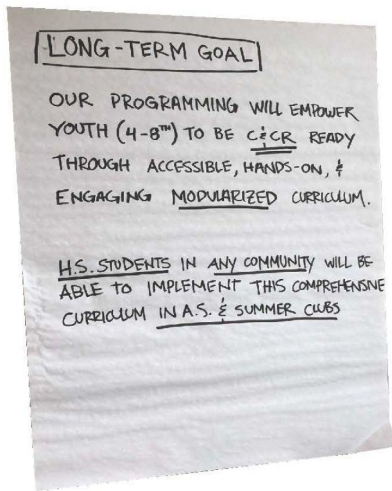 LONG-TERM GOAL
OUR PROGRAMMING WILL EMPOWER
YOUTH (4-8TH) TO BE C&CR READY
THROUGH ACCESSIBLE, HANDS-ON, &
ENGAGING MODULARIZED CURRICULUM.
H.S. STUDENTS IN ANY COMMUNITY WILL BE
ABLE TO IMPLEMENT THIS COMPREHENSIVE
CURRICULUM IN A.S. & SUMMER CLUBS